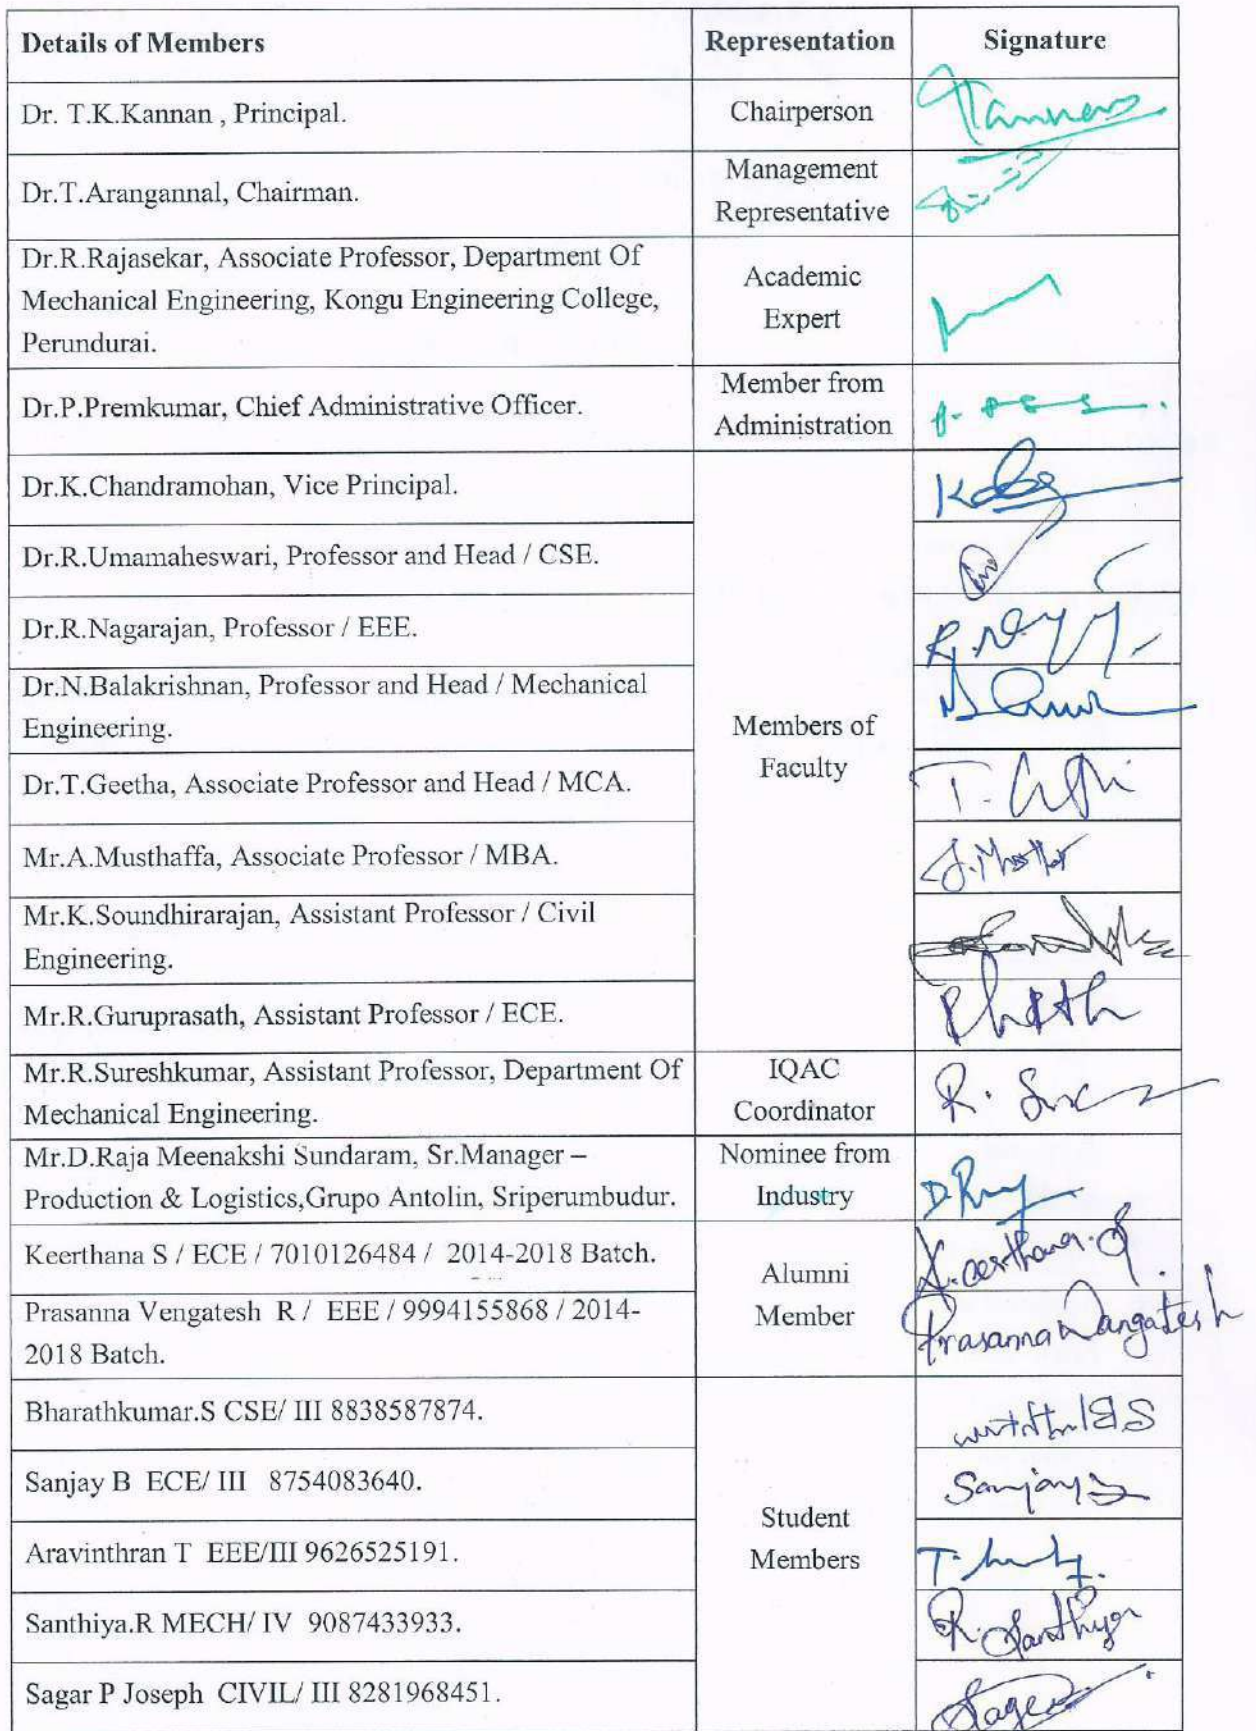 Details of Members Representation Signature
Dr. T.K.Kannan , Principal. Chairperson
Dr.T.Arangannal, Chairman. Management
Representative
Dr.R.Rajasekar, Associate Professor, Department Of
Mechanical Engineering, Kongu Engineering College,
Perundurai.
Academic
Expert
Dr.P.Premkumar, Chief Administrative Officer. Member from
Administration
Dr.K.Chandramohan, Vice Principal.
Dr.R.Umamaheswari, Professor and Head / CSE.
Dr.R.Nagarajan, Professor / EEE.
Dr.N.Balakrishnan, Professor and Head / Mechanical
Engineering.
Members of
Faculty
Dr.T.Geetha, Associate Professor and Head / MCA.
Mr.A.Musthaffa, Associate Professor / MBA.
Mr.K.Soundhirarajan, Assistant Professor / Civil
Engineering.
Mr.R.Guruprasath, Assistant Professor / ECE.
Mr.R.Sureshkumar, Assistant Professor, Department Of
Mechanical Engineering.
IQAC
Coordinator
Mr.D.Raja Meenakshi Sundaram, Sr.Manager –
Production & Logistics,Grupo Antolin, Sriperumbudur.
Nominee from
Industry
Keerthana S / ECE / 7010126484 / 2014-2018 Batch. K.eerthana.S
Prasanna Vengatesh R / EEE / 9994155868 / 2014-
2018 Batch.
Alumni
Member
Prasanna Vangatesh
Bharathkumar.S CSE/ III 8838587874.
Sanjay B ECE/ III 8754083640. Sanjay B
Aravinthran T EEE/III 9626525191.
Student
Members
Santhiya.R MECH/ IV 9087433933. R. Santhiya
Sagar P Joseph CIVIL/ III 8281968451. Sagar